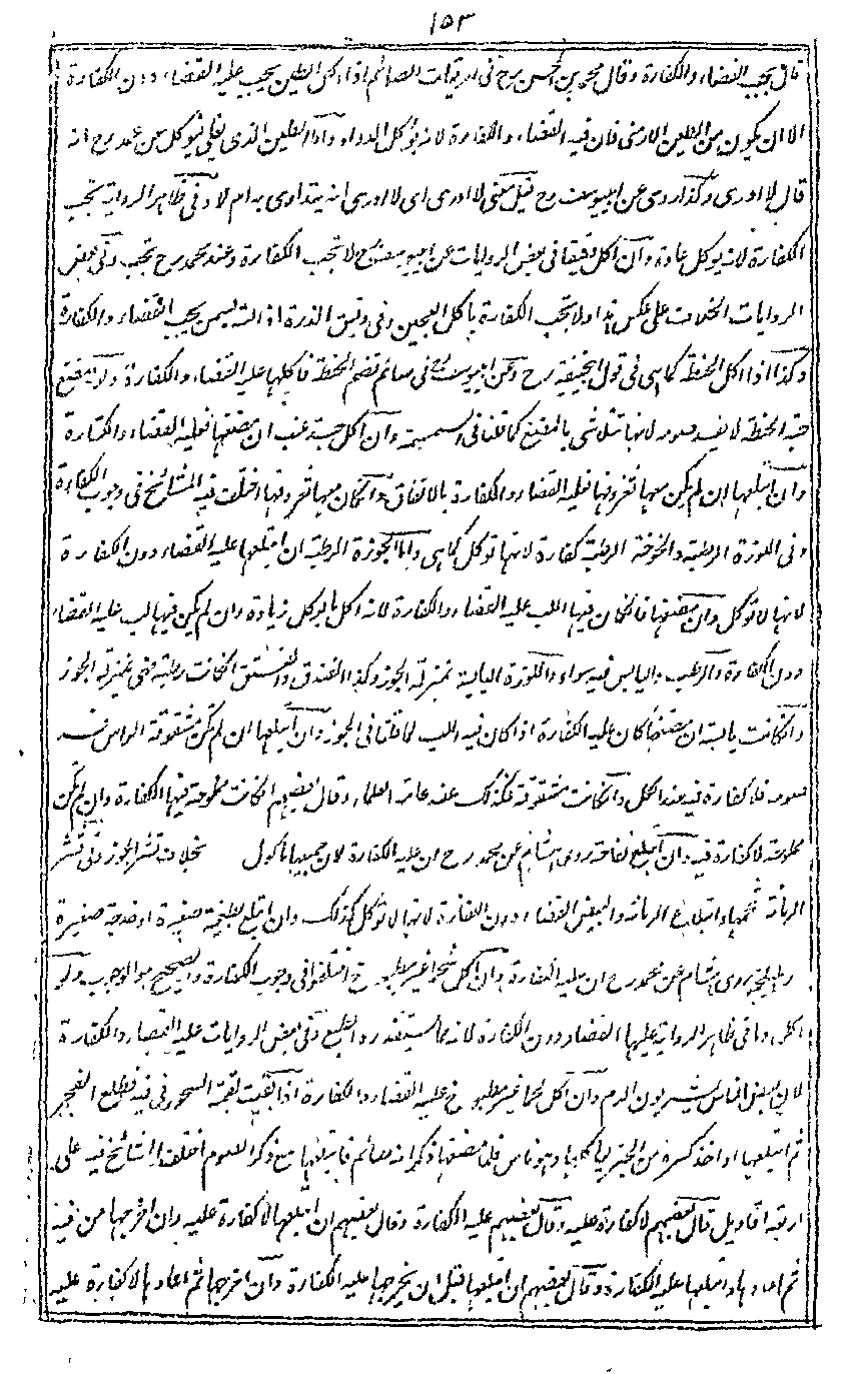 ١٥٣
قال يجب القضاء والكفارة وقال محمد بن الحسن رح فى الصائم اذا اكل الطين يجب عليه القضاء دون الكفارة
الا ان يكون من الطين الارمنى فان فيه القضاء والكفارة لانه يؤكل للدواء واما الطين الذى يقلى فيوكل عن محمد رح انه
قال لا ادرى وكذا روى عن ابيوسف رح قيل معنى لا ادرى اى لا ادرى انه يتداوى به ام لا وفى ظاهر الرواية تجب
الكفارة لانه يوكل عادة وان اكل دقيقا فى بعض الروايات عن ابيوسف رح لا تجب الكفارة وعند محمد رح تجب وفى بعض
الروايات الخلاف على عكس هذا ولا تجب الكفارة باكل العجين وفى دقيق الذرة اذا لته بسمن يجب القضاء والكفارة
وكذا اذا اكل الحنطة كما هى فى قول ابيحنيفة رح وعن ابيوسف رح فى صائم قضم الحنطة فاكلها عليه القضاء والكفارة ولو مضغ
حبة الحنطة لا يفسد صومه لانها تتلاشى بالمضغ كما قلنا فى السمسمة وان اكل حبة عنب ان مضغها فعليه القضاء والكفارة
وان ابتلعها ان لم يكن معها ثفروقها فعليه القضاء والكفارة بالاتفاق وان كان معها ثفروقها اختلف فيه المشائخ فى وجوب الكفارة
وفى اللوزة الرطبة والخوخة الرطبة كفارة لانها توكل كما هى واما الجوزة الرطبة ان ابتلعها عليه القضاء دون الكفارة
لانها لا توكل وان مضغها فان كان فيها اللب عليه القضاء والكفارة لانه اكل ما يوكل وزيادة وان لم يكن فيها لب عليه القضاء
دون الكفارة والرطب واليابس فيه سواء واللوزة اليابسة بمنزلة الجوز وكذا الفندق والفستق ان كانت رطبة فهى بمنزلة الجوز
وان كانت يابسة ان مضغها كان عليه الكفارة اذا كان فيه اللب لما قلنا فى الجوز وان ابتلعها ان لم تكن مشقوقة الراس فسد
صومه فلا كفارة فيه عند الكل وان كانت مشقوقة فكذلك عند عامة العلماء وقال بعضهم ان كانت مملوحة فيها الكفارة وان لم تكن
مملوحة لا كفارة فيه وان ابتلع تفاحة روى هشام عن محمد رح ان عليه الكفارة لان جميعها ماكول بخلاف قشر الجوز وفى قشر
الرمانة بشحمها وابتلاع الرمانة والبيض القضاء دون الكفارة لانها لا توكل كذلك وان ابتلع بطيخة صغيرة او خوخة صغيرة
روى هشام عن محمد رح ان عليه الكفارة وان اكل شحما غير مطبوخ اختلفوا فى وجوب الكفارة والصحيح هو الوجوب ولو
اكل دما فى ظاهر الرواية عليها القضاء دون الكفارة لانه مما يستقذره الطبع وفى بعض الروايات عليه القضاء والكفارة
لان بعض الناس يشربون الدم وان اكل لحما غير مطبوخ عليه القضاء والكفارة اذا بقيت لقمة السحور فى فيه فطلع الفجر
ثم ابتلعها او اخذ كسرة من الخبز ليأكلها وهو ناس فلما مضغها ذكر انه صائم فابتلعها مع ذكر الصوم اختلف المشائخ فيه على
اربعة اقاويل قال بعضهم لا كفارة عليه وقال بعضهم عليه الكفارة وقال بعضهم ان ابتلعها لا كفارة عليه وان اخرجها من فيه
ثم اعادها وابتلعها عليه الكفارة وقال بعضهم ان ابتلعها قبل ان يخرجها عليه الكفارة وان اخرجها ثم اعادها لا كفارة عليه